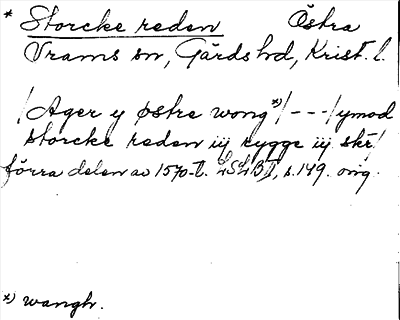 * Storcke reden Östra
Vrams sn, Gärds hd, Krist. l.
/Ager y østre wong*)/---/ymod
storcke reden iij rygge iij skr/
förra delen av 1570-t. LSLB I, s. 149. orig.
*) wangh.